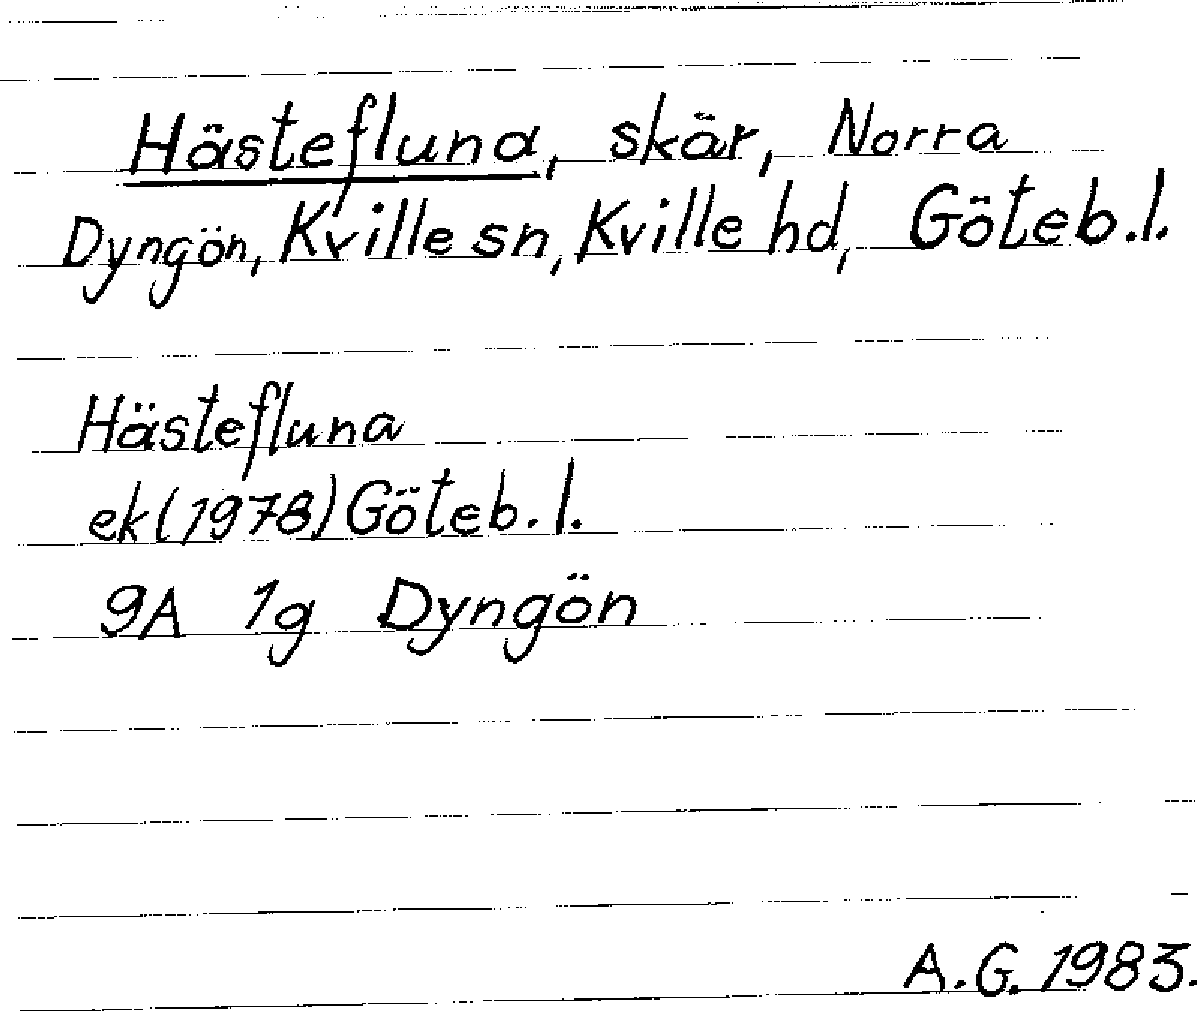 Hästefluna, skär, Norra
Dyngön, Kville sn, Kville hd, Göteb.l.
Hästefluna
ek (1978) Göteb.l.
9A 1g Dyngön
A.G. 1983.